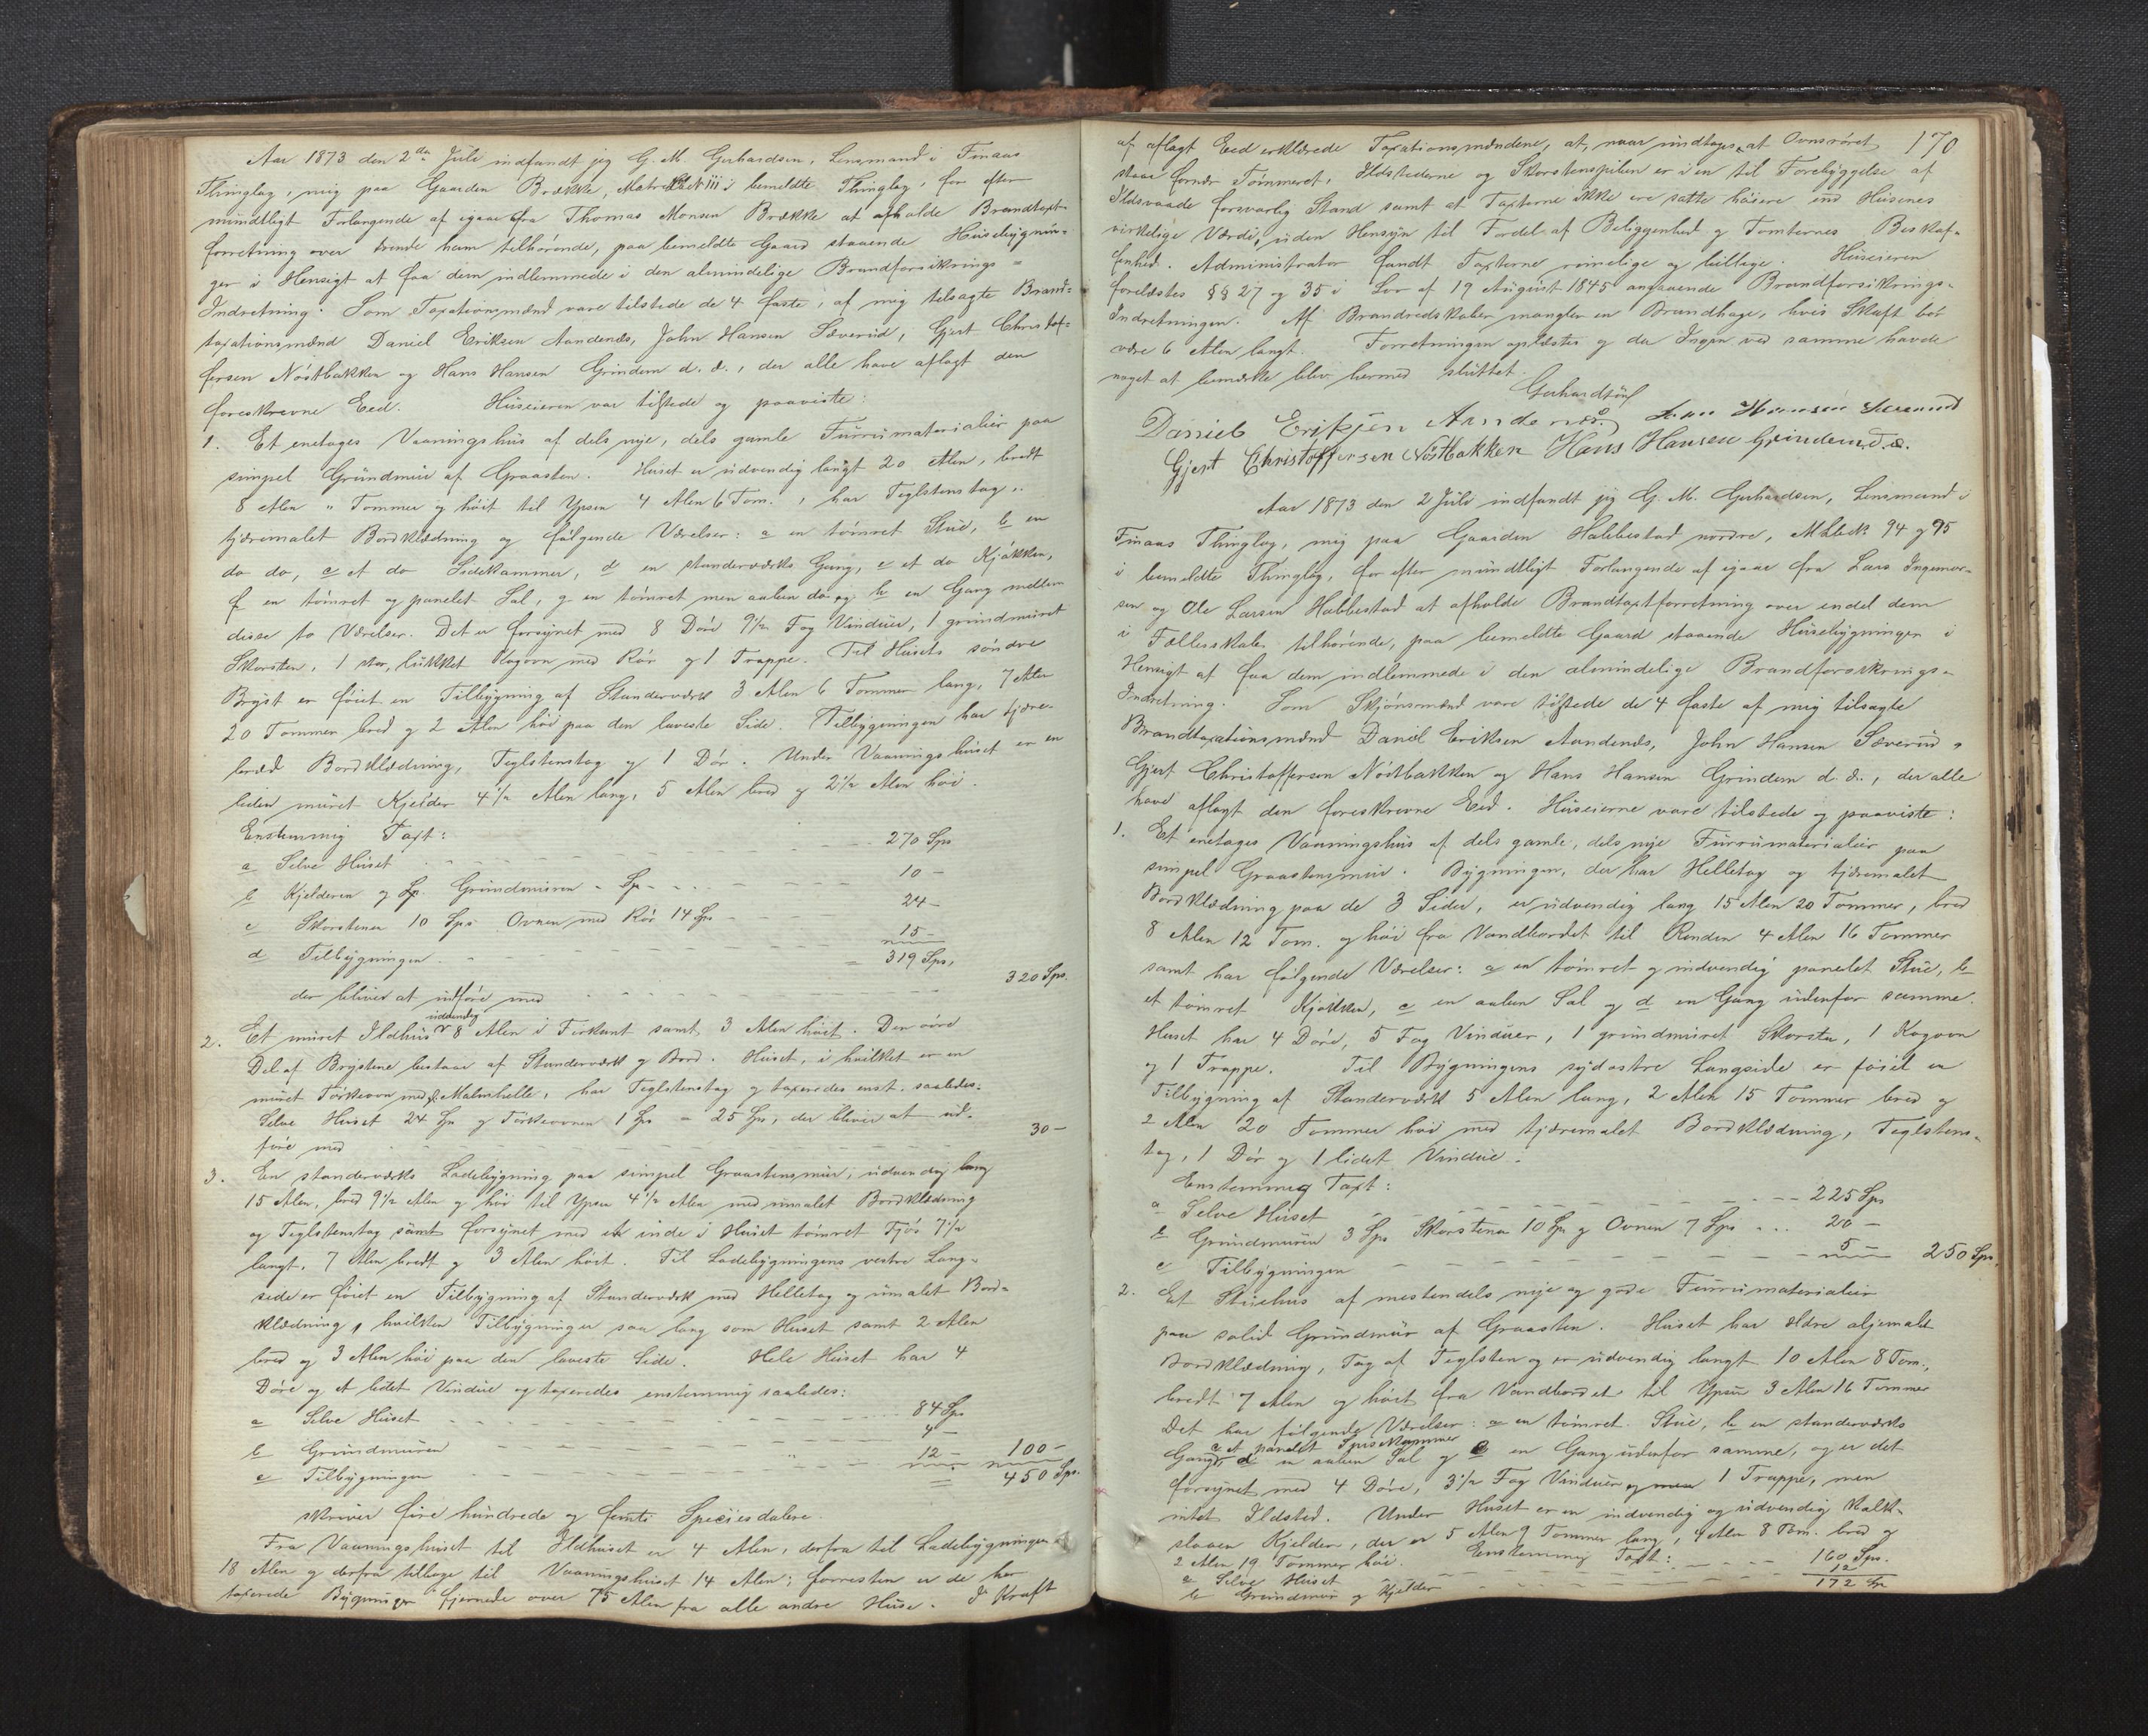 Aar 1873 den 2den Juli indfandt jeg G. M. Gerhardsen, Lensmand i Finaas
Thinglag, mig paa Gaarden Brække, Matr. i bemeldte Thinglag, for efter
mundtligt Forlangende af igaar fra Thomas Monsen Brække at afholde Brandtaxt-
forretning over trende ham tilhørende, paa bemeldte Gaard staaende Husebygnin-
ger i Hensigt at faa dem indlemmede i den almindelige Brandforsikrings-
Indretning. Som Taxationsmænd vare tilstede de 4 faste, af mig tilsagte Brand-
taxationsmænd Daniel Eriksen Aandenæs, John Hansen Sæverud, Gjert Christof-
fersen Nöstbakken og Hans Hansen Grindem d. æ., der alle have aflagt den
foreskrevne Eed. Huseieren var tilstede og paaviste:
1. Et enetages Vaaningshus af dels nye, dels gamle Furrumaterialier paa
simpel Grundmur af Graasten. Huset er udvendig langt 20 Alen, bredt
8 Alen " Tommer og höit til Ypsen 4 Alen 6 Tom., har Teglstenstag,
tjæremalet Bordklædning og fölgende Værelser: a en tömret Stue, b en
do do, c et do Sidekammer, d en standerværks Gang, e et do Kjökken,
f en tömret og panelet Sal, g en tömret men aaben do og h en Gang mellem
disse to Værelser. Det er forsynet med 8 Döre 9 1/2 Fag Vinduer, 1 grundmuret
Skorsten, 1 stor, lukket Kogovn med Rör og 1 Trappe. Til Husets söndre
Bryst er föiet en Tilbygning af Standerværk 3 Alen 6 Tommer lang, 7 Alen
20 Tommer bred og 2 Alen höi paa den laveste Side. Tilbygningen har tjære-
bredt Bordklædning, Teglstenstag og 1 Dör. Under Vaaningshuset er en
liden muret Kjelder 4 1/2 Alen lang, 5 Alen bred og 2 1/2 Alen höi.
Enstemmig Taxt:
a Selve Huset 270 Spd
b Kjelderen og Grundmuren 10 -
c Skorstenen 10 Spd Ovnen med Rör 14 Spd 24 -
d Tilbygningen 15 -
319 Spd,
der bliver at indföre med 320 Spd.
2. Et muret Ildhus udvendig 8 Alen i Firkant samt 3 Alen höit. Den övre
Del af Brystene bestaar af Standerværk og Bord. Huset, i hvilket er en
muret Törkeovn med Malmhelle, har Teglstenstag og taxeredes enst. saaledes:
Selve Huset 24 Spd og Törkeovnen 1 Spd = 25 Spd, der bliver at ud-
före med 30 -
3. En standerværks Ladebygning paa simpel Graastensmur, udvendig lang
15 Alen, bred 9 1/2 Alen og höi til Ypsen 4 1/2 Alen med umalet Bordklædning
og Teglstenstag samt forsynet med et inde i Huset tömret Fjös 7 1/2
langt, 7 Alen bredt og 3 Alen höit. Til Ladebygningens vestre Lang-
side er föiet en Tilbygning af Standerværk med Helletag og umalet Bord-
klædning, hvilken Tilbygning er saa lang som Huset samt 2 Alen
bred og 3 Alen höi paa den laveste Side. Hele Huset har 4
Döre og et lidet Vindue og taxeredes enstemmig saaledes:
a Selve Huset 84 Spd
b Grundmuren 4 -
c Tilbygningen 12 - 100 -
450 Spd.
skriver fire hundrede og femti Speciesdalere.
Fra Vaaningshuset til Ildhuset er 4 Alen, derfra til Ladebygningen
18 Alen og derfra tilbage til Vaaningshuset 14 Alen; forresten er de her
taxerede Bygninger fjernede over 75 Alen fra alle andre Huse. I Kraft
170
af aflagt Eed erklærede Taxationsmændene, at, naar undtages, at Ovnsröret
staar for nær Tömmeret, Ildstederne og Skorstenspiben er i en til Forebyggelse af
Ildsvaade forsvarlig Stand samt at Taxterne ikke ere satte höiere end Husenes
virkelige Værdi, uden Hensyn til Fordel af Beliggenhed og Tomternes Beskaf-
fenhed. Administrator fandt Taxterne rimelige og billige. Huseieren
forelæstes §§ 27 og 35 i Lov af 19 August 1845 angaaende Brandforsikrings-
Indretningen. Af Brandredskaber mangler en Brandhage, hvis Skaft bör
være 6 Alen langt. Forretningen oplæstes og da Ingen ved samme havde
noget at bemærke blev hermed sluttet.
Gerhardsen
Daniel Eriksen Aandenæs, John Hansen Sæverud
Gjert Christoffersen Nöstbakken Hans Hansen Grindem d. æ.
Aar 1873 den 2 Juli indfandt jeg G. M. Gerhardsen, Lensmand i
Finaas Thinglag, mig paa Gaarden Habbestad nordre, 94 og 95
i bemeldte Thinglag, for efter mundtligt Forlangende af igaar fra Lars Ingemor-
sen og Ole Larsen Habbestad at afholde Brandtaxtforretning over endel dem
i Fællesskab tilhørende, paa bemeldte Gaard staaende Husebygninger i
Hensigt at faa dem indlemmede i den almindelige Brandforsikrings-
Indretning. Som Skjönsmænd vare tilstede de 4 faste af mig tilsagte
Brandtaxationsmænd Daniel Eriksen Aandenæs, John Hansen Sæverud,
Gjert Christoffersen Nöstbakken og Hans Hansen Grindem d. æ., der alle
have aflagt den foreskrevne Eed. Huseierne vare tilstede og paaviste:
1. Et enetages Vaaningshus af dels gamle, dels nye Furrumaterialier paa
simpel Graastensmur. Bygningen, der har Helletag og tjæremalet
Bordklædning paa de 3 Sider, er udvendig lang 15 Alen 20 Tommer, bred
8 Alen 12 Tom. og höi fra Vandbordet til Renden 4 Alen 16 Tommer
samt har fölgende Værelser: a en tömret og indvendig panelet Stue, b
et tömret Kjökken, c en aaben Sal og d en Gang udenfor samme.
Huset har 4 Döre, 5 Fag Vinduer, 1 grundmuret Skorsten, 1 Kogovn
og 1 Trappe. Til Bygningens sydöstre Langside er föiet en
Tilbygning af Standerværk 5 Alen lang, 2 Alen 15 Tommer bred og
2 Alen 20 Tommer höi med tjæremalet Bordklædning, Teglstens-
tag, 1 Dör og 1 lidet Vindue.
Enstemmig Taxt:
a Selve Huset 225 Spd
b Grundmuren 3 Spd Skorstenen 10 Spd og Ovnen 7 Spd 20 -
c Tilbygningen 5 - 250 Spd.
2. Et Stuehus af mestendels nye og gode Furrumaterialier
paa solid Grundmur af Graasten. Huset har ældre oljemalet
Bordklædning, Tag af Teglsten og er udvendig langt 10 Alen 8 Tom.,
bredt 7 Alen og höit fra Vandbordet til Ypsen 3 Alen 16 Tommer
Det har fölgende Værelser: a en tömret Stue, b en standerværks
Gang, c et panelet Spisekammer d en aaben Sal og e en Gang udenfor samme, og er det
forsynet med 4 Döre, 3 1/2 Fag Vinduer og 1 Trappe, men
intet Ildsted. Under Huset er en indvendig og udvendig kalk-
slaaen Kjelder, der er 5 Alen 9 Tommer lang, 4 Alen 8 Tom. bred og
2 Alen 19 Tommer höi. Enstemmig Taxt:
a Selve Huset 160 Spd.
b Grundmur og Kjelder 12
172 Spd